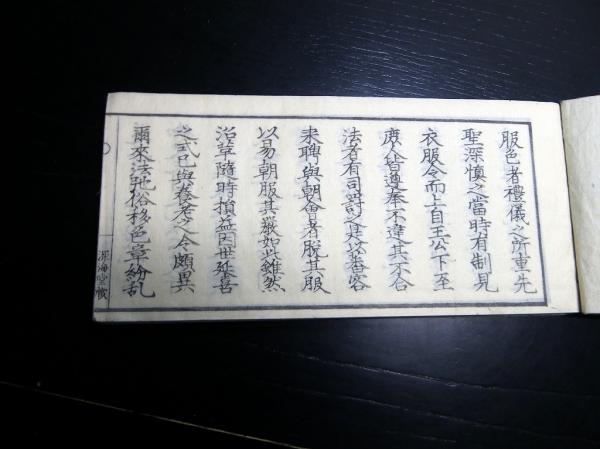 服色者禮儀之所重先
聖深慎之當時有制見
衣服令而上自王公下至
庶人皆遵奉不違其不合
法者有司之蕃客
来聘與朝會者脱其服
以易朝服其嚴如此雖然
沿革隨時損益因世延喜
之式已與養老之令頗異
爾來法弛俗移色章紛乱